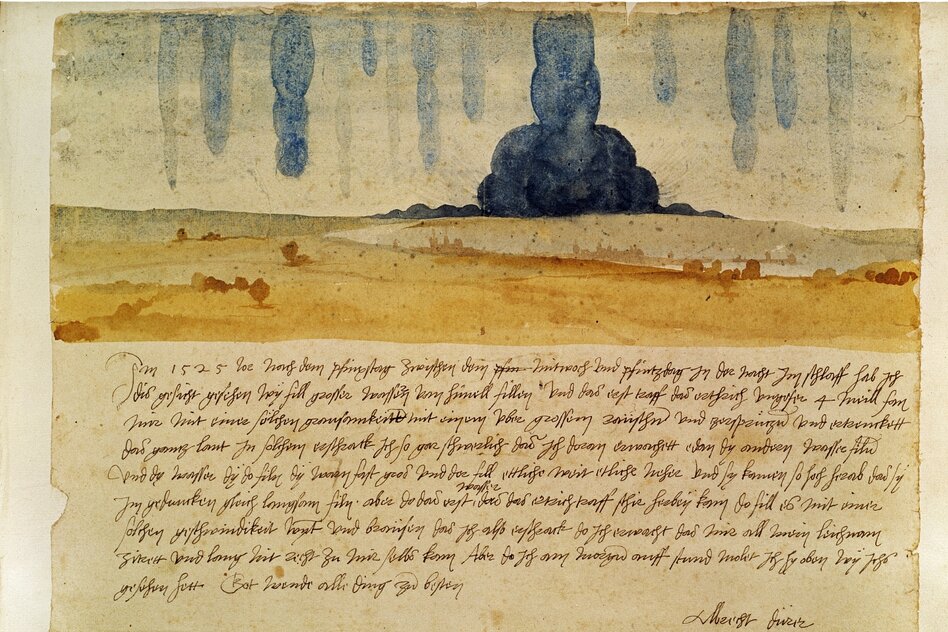 Im 1525 Jor noch dem pfinxstag zwischen dem pfin mitwoch und pfintzdag in der nacht im schlaff hab ich
dis gesicht gesehen wy fill grosser wasser vom himell fillen Und das erst traff das erthrich ungefer 4 meill fan
mir mit einer solchen grausamkeitt mit einem uber grossem raüschn und zersprützn und ertrenckett
das gantz lant In solchem erschrack ich so gar schwerlich das ich doran erwachett e dan dy andern wasser filn
Und dy wasser dy do filn dy warn fast gros und der fill ettliche weit etliche neher und sy kamen so hoch herab das sy
im gedancken gleich langsam filn aber do das erst wasser das das ertrich traff schir herbey kam do fill es mit einer
solchen geschwindikeit wynt und braüsen das ich also erschrack do ich erwacht das mir all mein leichnam
zitrett und lang nit recht zu mir selbs kam Aber do ich am morgn auff stund molet ich hy oben wy ichs
gesehen hett Got wende alle ding zu besten
Albrecht dürer